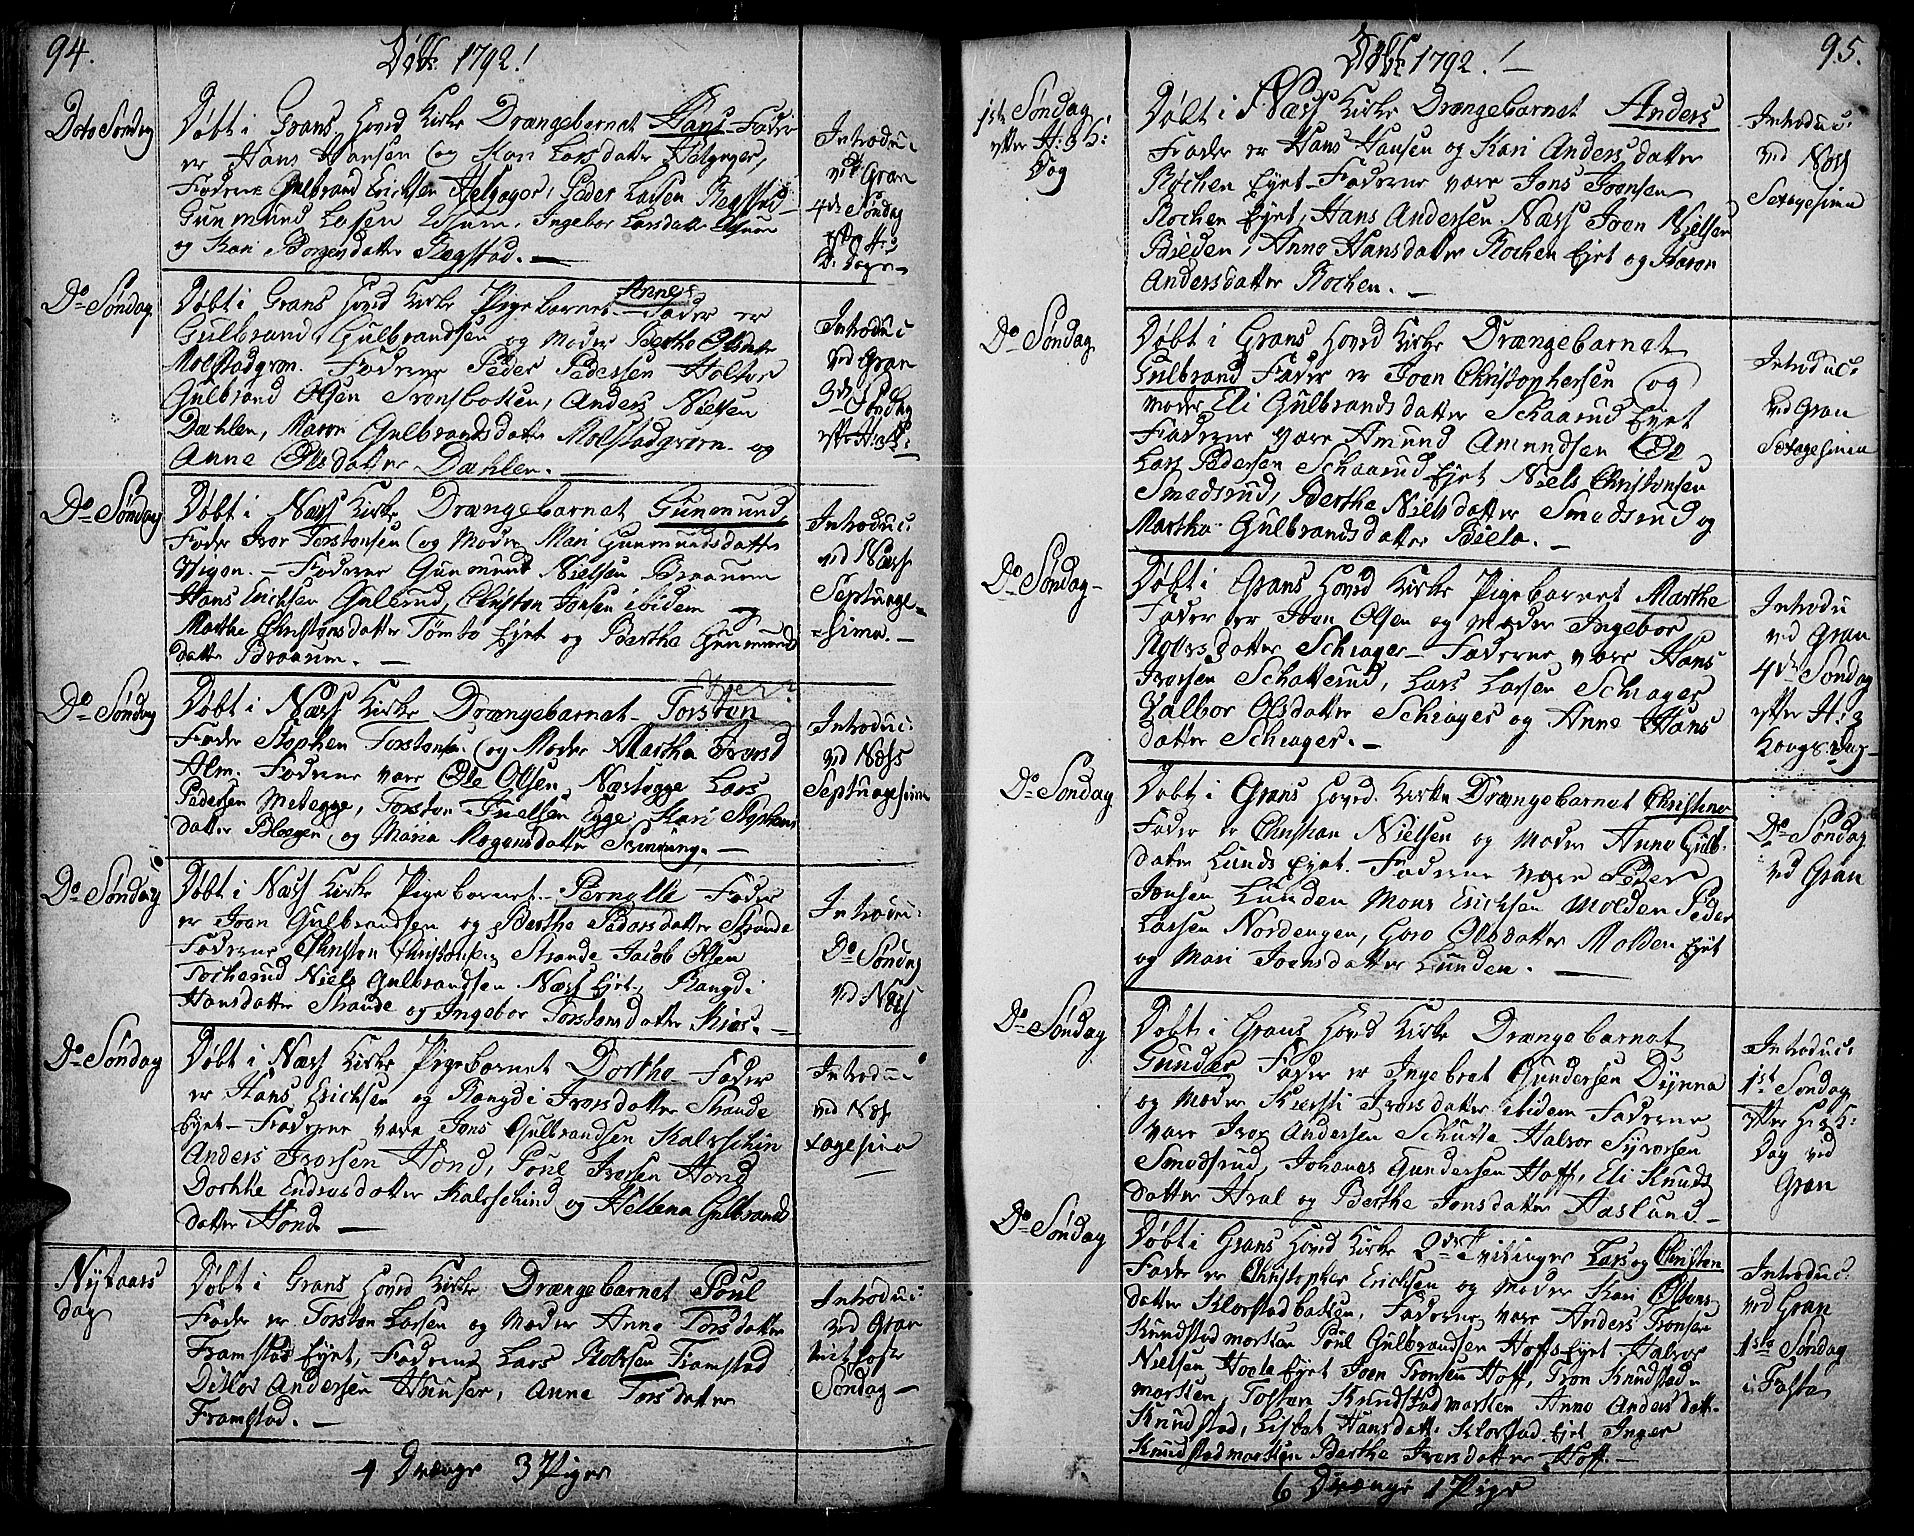 94.
Døbt 1792!
Dito Søndag
Døbt i Grans Hoved Kirke Drængebarnet Hans Fader
er Hans Hansen og Kari Larsdatter Helgager,
Faderne Gulbrand Erichsen Helgager, Peder Larsen Regstad
Gunmund Larsen Ingebor Larsdatter
og Kari Borgersdatter Regstad. —
Introduc:
ved Gran
4de Søndag
efter H: 3
K: Dage
Do Søndag
Døbt i Grans Hoved Kirke Pigebarnet Anne Fader er
Gulbrand Gulbrandsen og Moder Berthe Olsdatter
Molstadgrøn. Faderne Peder Pedersen Holter
Gulbrand Olsen Anders Nielsen
Dæhlen, Maren Gulbrandsdatter Molstadgrøn og
Anne Olsdatter Dæhlen. —
Introduc:
ved Gran
3de Søndag
efter H: 3 K:
Do Søndag
Døbt i Næss Kirke Drængebarnet Gunmund
Fader Iver Torstensen og Moder Mari Gunmundsdatter
Faderne Gunmund Nielsen
Hans Erichsen Gulerud, Christen Jonsen ibidem
Marthe Christensdatter Tømte Eyet og Berthe Gunmunds
datter —
Introduc:
ved Næss
Septuage-
sima. —
Do Søndag
Døbt i Næss Kirke Drængebarnet Torsten
Fader Stephen Torstensen og Moder Martha
Alm. Faderne vare Ole Olsen Næstegge Lars
Pedersen Metegge, Torsten Egge Kari Stephens
datter Bleegen og Maria Mogensdatter —
Introduc:
ved Næss
Septuagesima
Do Søndag
Døbt i Næss Kirke Pigebarnet Pernelle Fader
er Joen Gulbrandsen og Berthe Pedersdatter Strande
Faderne Christen Christensen Strande Jacob Olsen
Niels Gulbrandsen Næss Eyet, Rangdi
Hansdatter Strande og Ingebor Torstensdatter
Introduc:
Do Søndag
ved Næss
Do Søndag
Døbt i Næss Kirke Pigebarnet Dorthe Fader
er Hans Erichsen og Rangdi Iversdatter Strande
Eyet Faderne vare Jens Gulbrandsen
Anders Iversen Hond, Poul Iversen Hond
Dorthe Endresdatter og Hellena Gulbrands
datter Hond —
Introdu:
ved Næss
xagesima
Nytaars
dag
Døbt i Grans Hoved Kirke Drængebarnet Poul
Fader er Torsten Larsen og Moder Anne Torsdatter
Framstad Eyet, Faderne Lars Framstad
Ditlev Andersen Anne Torsdatter
Framstad. —
Introduc:
ved Gran
Søndag —
4 Drenge 3 Piger
95.
Døbt 1792. —
1ste Søndag
efter H: 3 K:
Dag
Døbt i Næss Kirke Drængebarnet Anders
Fader er Hans Hansen og Kari Andersdatter
Røchen Eyet Faderne vare Jens Jensen
Rochen Eyet, Hans Andersen Næss Joen Nielsen
Anne Hansdatter Rochen Eyet og Karen
Andersdatter Rochen. —
Introduc:
ved Næss
Sexagesima
Do Søndag
Døbt i Grans Hoved Kirke Drængebarnet
Gulbrand Fader er Joen Christophersen og
Moder Eli Gulbrandsdatter Schaarud Eyet
Faderne vare Amund Amundsen
Lars Pedersen Schaarud Eyet Niels Christensen
Smedsrud, Berthe Nielsdatter Smedsrud og
Martha Gulbrandsdatter —
Introduc:
ved Gran
Sexagesima
Do Søndag
Døbt i Grans Hoved Kirke Pigebarnet Marthe
Fader er Joen Olsen og Moder Ingebor
datter Schiager Faderne vare Hans
Iversen Schatterud, Lars Larsen Schiager
Valbor Olsdatter Schiager og Anne Hans
datter Schiager. —
Introdu
ved Gran
4de Søndag
efter H: 3
Kongers Dag
Do Søndag
Døbt i Grans Hoved Kirke Drængebarnet
Fader er Christian Nielsen og Moder Anne Gulb.
datter Lunds Eyet. Faderne vare Peder
Jensen Lunden Mons Erichsen Molden Peder
Larsen Nordengen, Goro Olsdatter Molden Eyet
og Mari Joensdatter Lunden. —
Do Søndag
ved Gran
Do Søndag
Døbt i Grans Hoved Kirke Drængebarnet
Gunder Fader er Ingebret Gundersen Dynna
og Moder Kiersti Iversdatter ibidem Faderne
vare Iver Andersen Schutte Halvor Syversen
Smedsrud, Johannes Gundersen Hoff, Eli Knuds
datter Hval og Berthe Jensdatter Haslund —
Introduc:
1ste Søndag
efter H: 3 K:
Dag ved
Gran
Do Søndag
Døbt i Grans Hoved Kirke 2de Tvilinger Lars og Christen
Fader er Christopher Erichsen og Moder Kari
datter Klorstadbaken, Faderne vare Anders Tronsen
Knudstadmarken Poul Gulbrandsen Hoffs Eyet Halvor
Nielsen Eyet Joen Tronsen Hoff, Tron Knudstad-
marken, Tosten Knudstadmarken Anne Andersdatt.
Knudstad, Lisbet Hansdatt. Klorstad Eyet Inger
Knudstadmarken Berthe Iversdatter Hoff. —
Introduc:
ved Gran
1ste Søndag
i Faste
6 Drænge 1 Pige